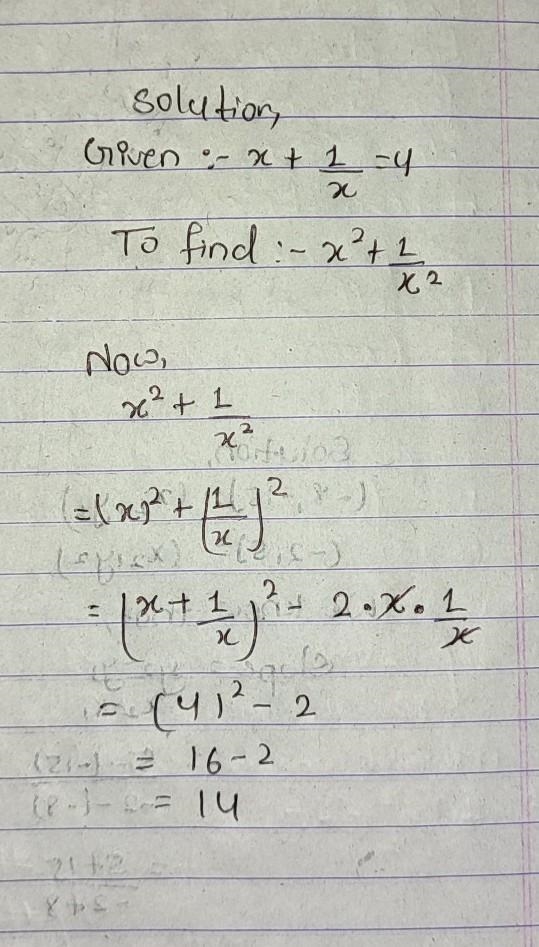 Solution,
Given :- x + 1/x = 4
To find :- x² + 1/x²
Now,
x² + 1/x²
= (x)² + (1/x)²
= (x + 1/x)² - 2 . x . 1/x
= (4)² - 2
= 16 - 2
= 14